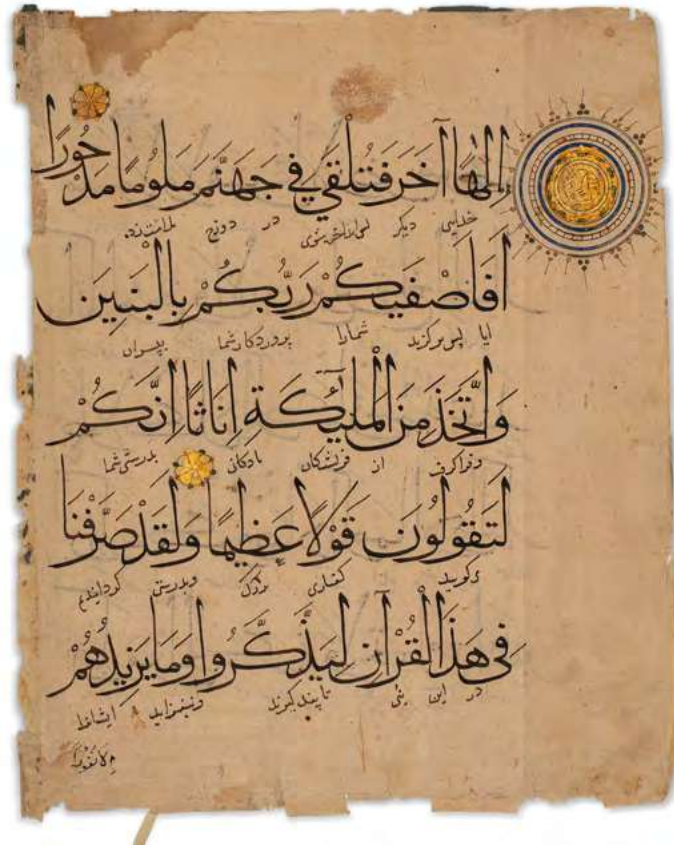 إِلَٰهًا آخَرَ فَتُلْقَىٰ فِي جَهَنَّمَ مَلُومًا مَدْحُورًا
خدایی دیگر در دوزخ
أَفَأَصْفَيكُمْ رَبُّكُمْ بِالْبَنِينَ
ایا پس برگزید شمارا پروردگار شما بپسران
وَاتَّخَذَ مِنَ الْمَلٰئِكَةِ إِنَاثًا إِنَّكُمْ
وفرا گرفت از فریشتگان مادگان بدرستی شما
لَتَقُولُونَ قَوْلًا عَظِيمًا وَلَقَدْ صَرَّفْنَا
گفتاری بزرگ وبدرستی گردانیدیم
فِي هَذَا الْقُرْآنِ لِيَذَّكَّرُوا وَمَا يَزِيدُهُمْ
در این تا پند گیرند ونیفزاید ایشانرا
إلا نفورا